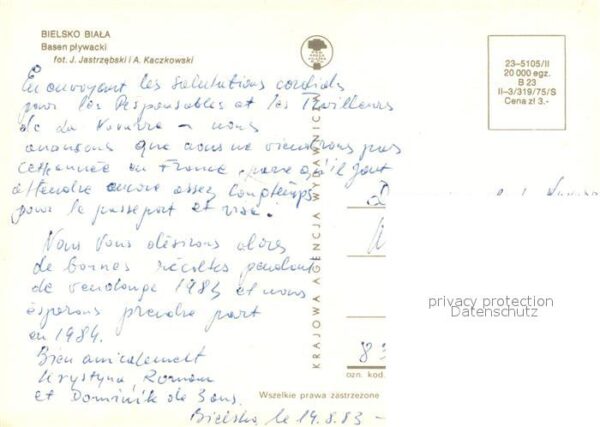 BIELSKO BIAŁA
Basen pływacki
fot. J. Jastrzębski i A. Kaczkowski
En envoyant les salutations cordials
pour les Responsables et les Travilleurs
de La - nous
anonsons que nous ne viendrons pas
cette année en France, parce qu'il faut
attendre encore assez longtemps
pour le passeport et visa.
Nous Vous désirons alors
de bonnes récoltes pendant
de vendange 1983 et nous
ésperons prendre part
en 1984.
Bien amicalement
Krystyna, Roman
et Dominik de Sons.
Bielsko, le 19.8.83 -
KRAJOWA AGENCJA WYDAWNICZA
23-5105/II
20 000 egz.
B 23
II-3/319/75/S
Cena zł 3.-
privacy protection
Datenschutz
83
ozn. kod.
Wszelkie prawa zastrzeżone